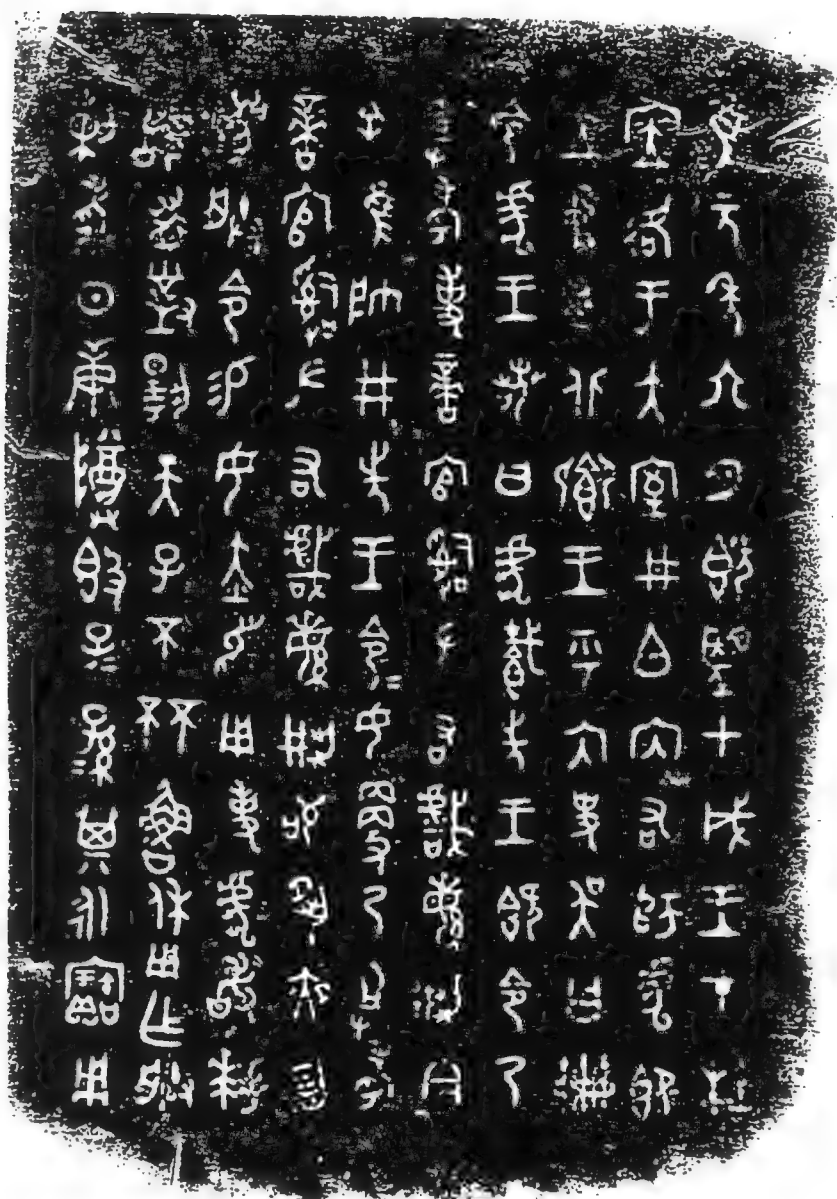 隹元年六月既望甲戌王才杜
㡴格于大室井白內右師虎即
立中廷北鄉王乎內史吳曰冊
令虎王若曰虎載先王既令乃
祖考事啻官𤔲左右戲繁荊今
余隹帥井先王令=女更乃祖考
啻官𤔲左右戲繁荊敬夙夜勿
灋朕令易女赤舄用事虎敢拜
𩒨首對揚天子不㔻魯休用乍朕
剌考日庚尊簋子=孫=其永寶用